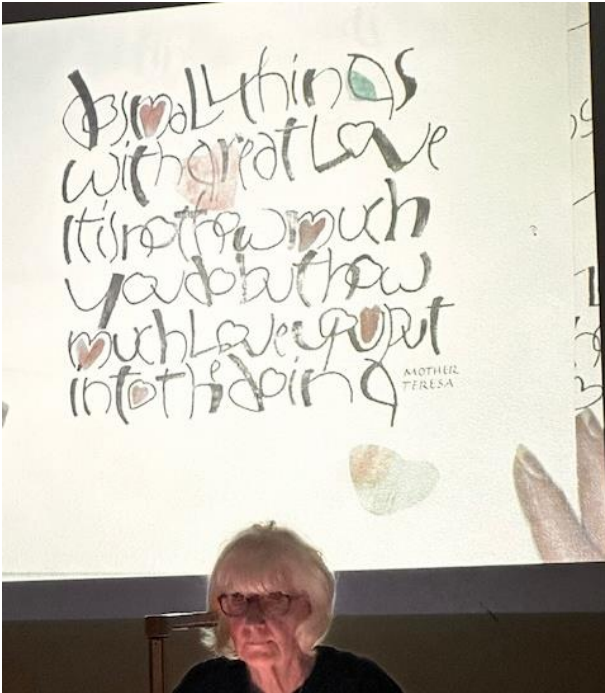 do small things
with great Love
It is not how much
you do but how
much Love you put
into the doing
MOTHER
TERESA